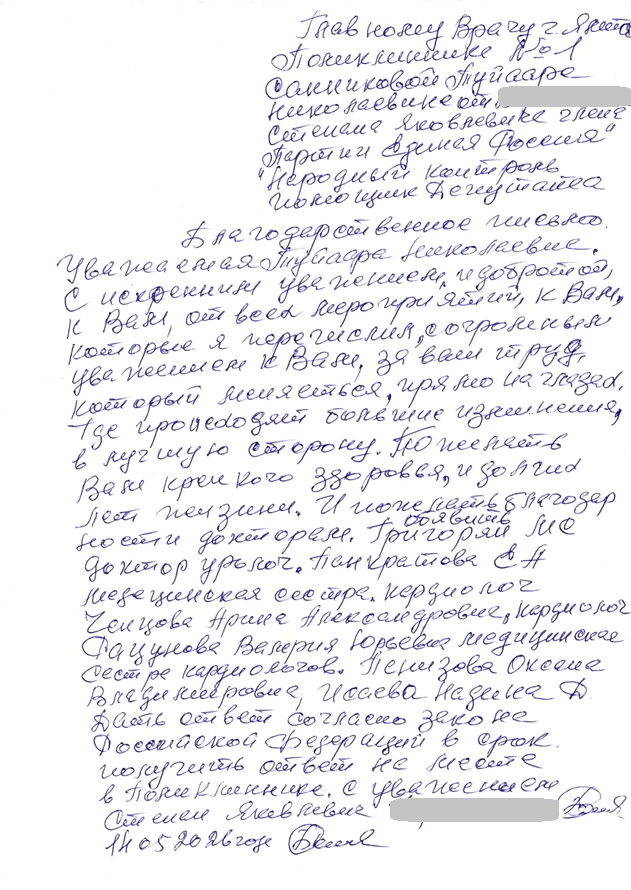 Главному Врачу г. Ялта
Поликлинике №1
Санниковой Туйааре
Николаевине от
Степана Яковлевича члена
Партии Единая Россия"
"Народный контроль
помощник Депутата
Благодарственное письмо.
Уважаемая Туйаара Николаевне.
С искренним уважением, и добротой,
к Вам, от всех мероприятий, к Вам,
которые я перечислил, с огромным
уважением к Вам, за ваш труд,
который меняеться, прямо на глазах.
Где происходят большие изменения,
в лучшую сторону. Пожелать
Вам крепкого здоровья, и долгих
лет жизни. И пожелать благодар
объявить
ности докторам. Григорян МС
доктор уролог. Панкратова ЕА
медецинская сестра. кардиолог
Ченцова Арина Александровна, кардиолог
Фацунова Валерия Юрьевна медицинская
сестра кардиологов. Пенизова Оксана
Владимировна, Исаева Надина Д.
Дать ответ согласно закона
Российской Федерации в срок.
получить ответ на места
в Поликлинике. с уважением
Степан Яковлевич
14 05 2026 годе